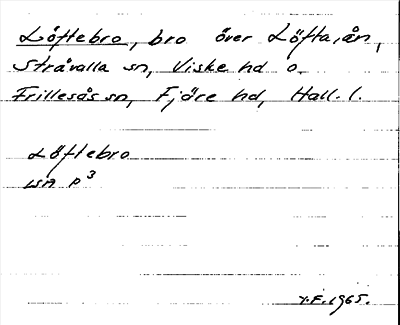 Löftebro, bro över Löftaån,
Stråvalla sn, Viske hd o.
Frillesås sn, Fjäre hd, Hall. l.
Löftebro
p³
Y.F. 1965.